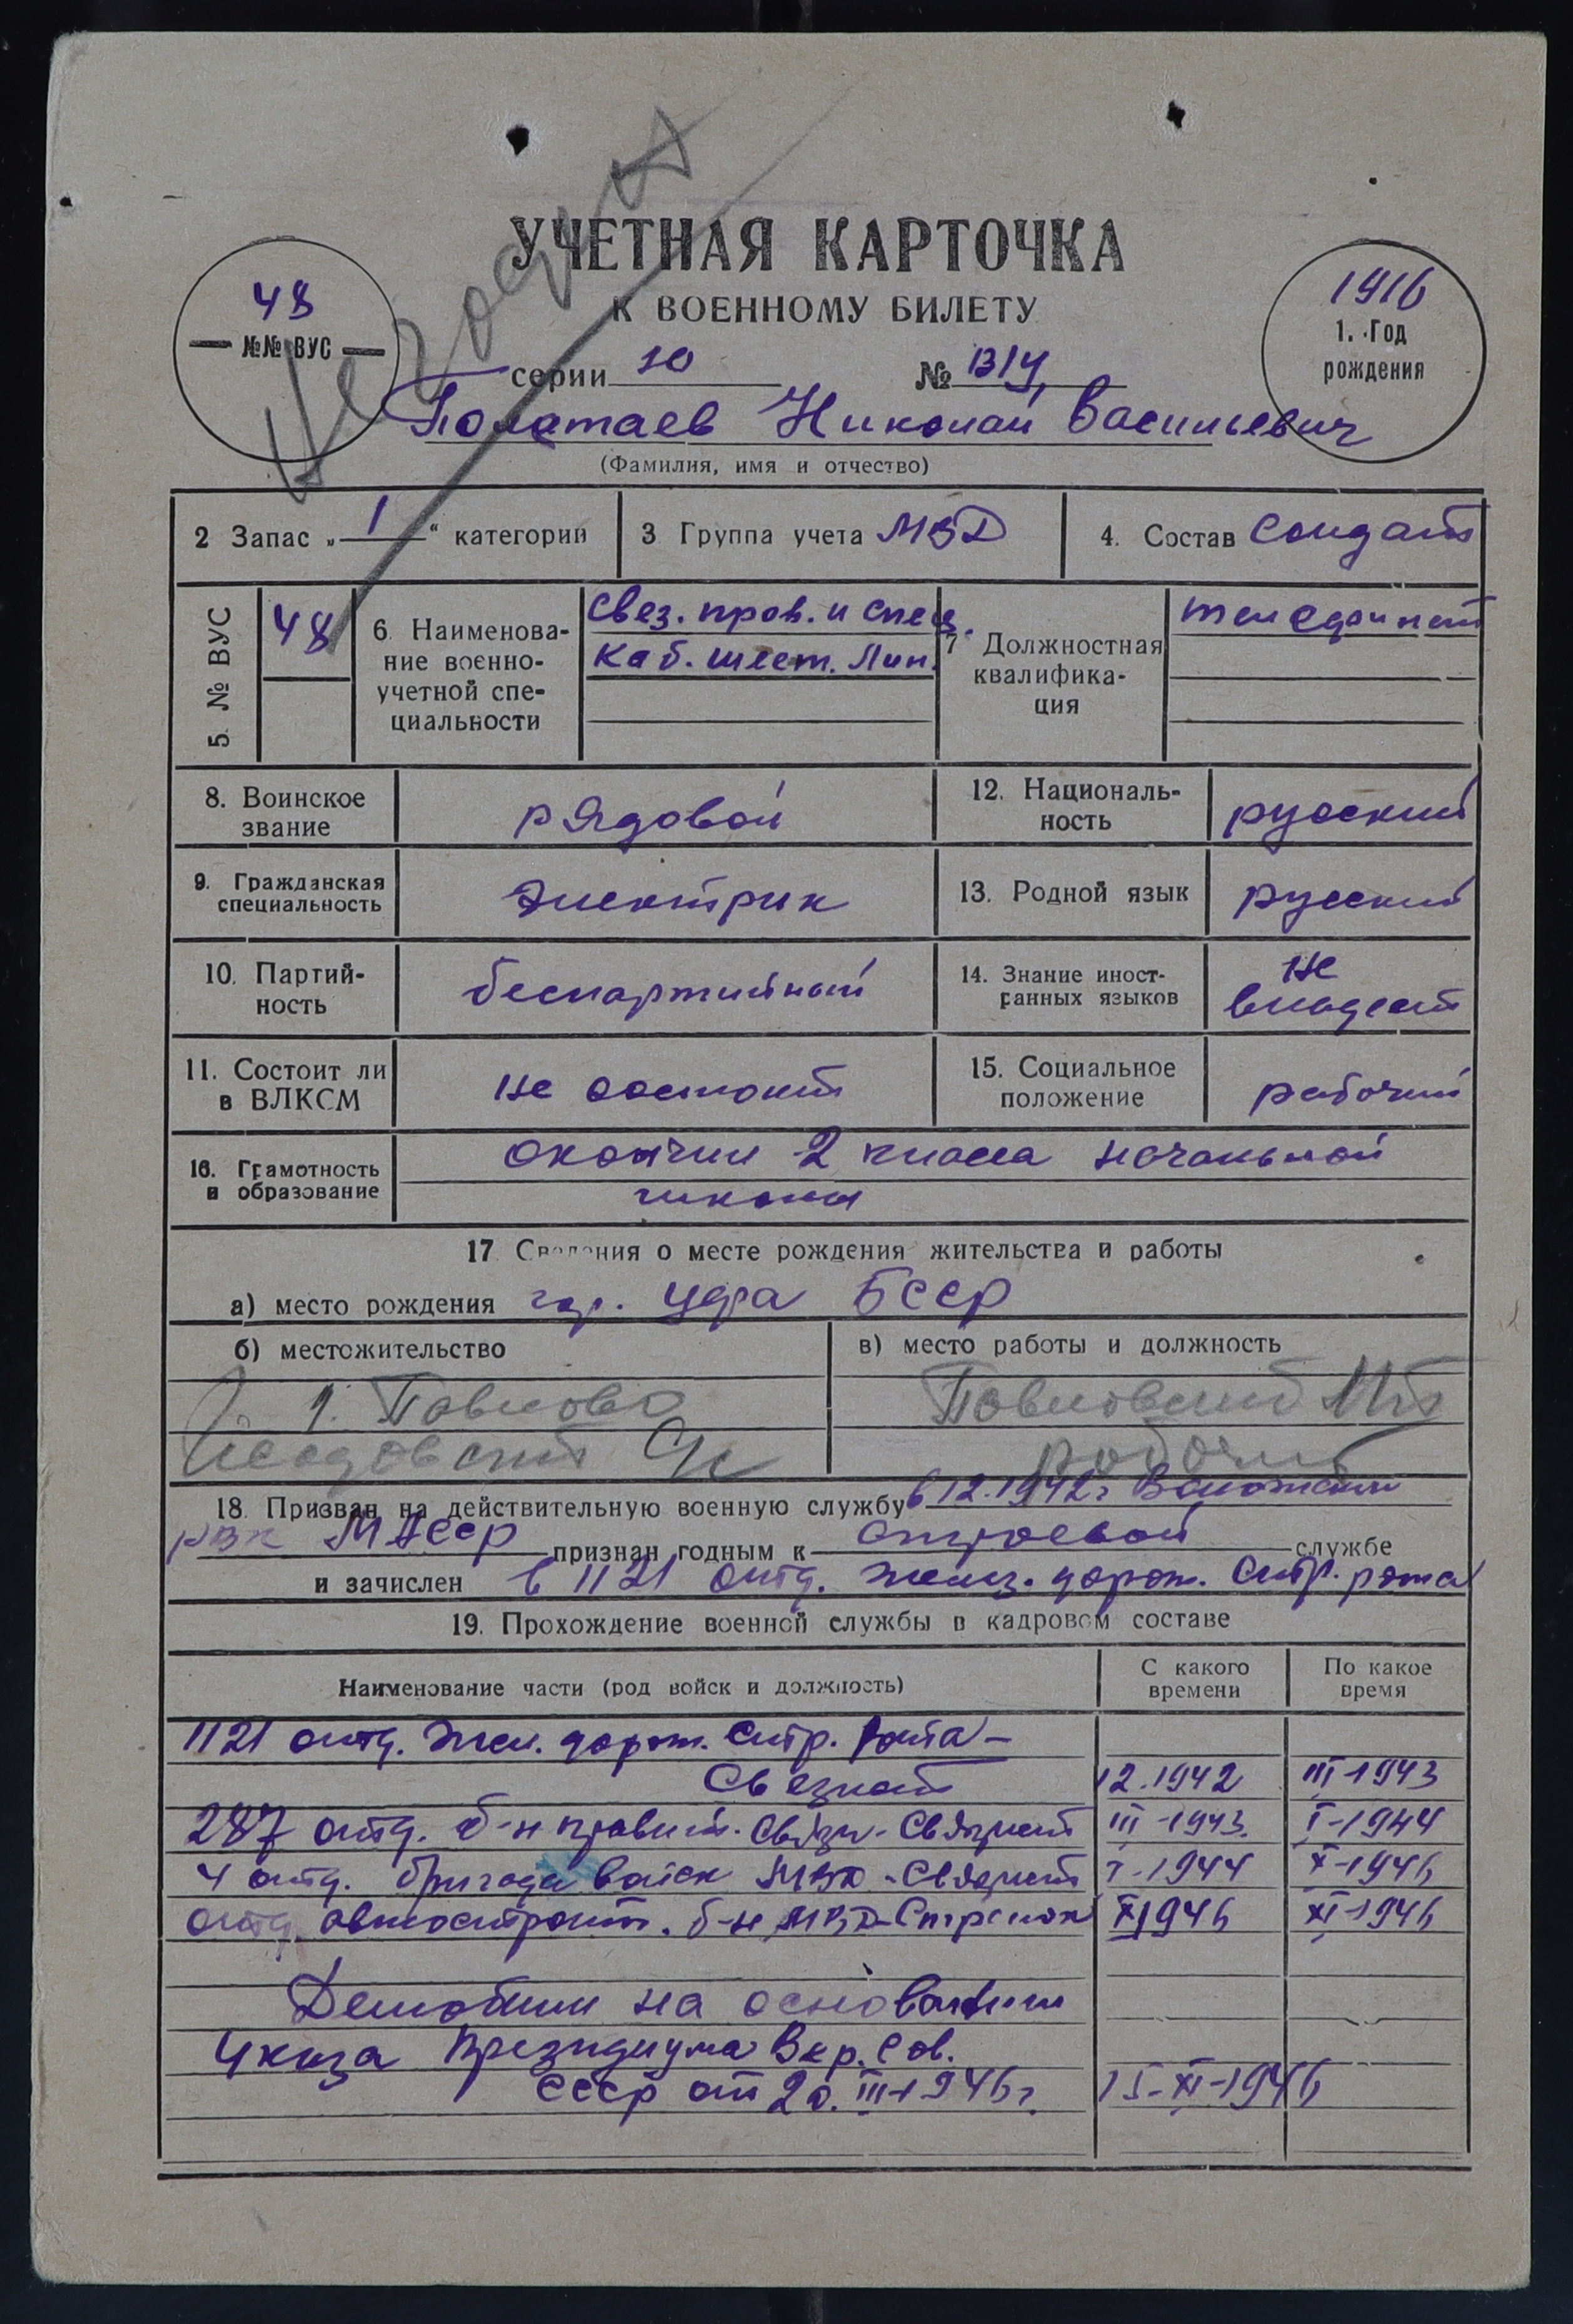 Негоден
УЧЕТНАЯ КАРТОЧКА
К ВОЕННОМУ БИЛЕТУ
48
№№ ВУС
1916
1. Год
рождения
серии Ю №
Полетаев Николай Васильевич
(Фамилия, имя и отчество)
2 Запас „1“ категории
3 Группа учета МВД
4. Состав Солдат
5. № ВУС
48
6. Наименова-
ние военно-
учетной спе-
циальности
Свез. пров. и спец.
Каб. шест. Лин.
7 Должностная
квалифика-
ция
8. Воинское
звание
рядовой
12. Националь-
ность
русский
9. Гражданская
специальность
Электрик
13. Родной язык
русский
10. Партий-
ность
беспартийный
14. Знание иност-
ранных языков
не
владеет
11. Состоит ли
в ВЛКСМ
не состоит
15. Социальное
положение
рабочий
16. Грамотность
и образование
окончил 2 класса начальной
школы
17 Сведения о месте рождения жительства и работы
а) место рождения гор. Уфа БССР
б) местожительство
Павлово
в) место работы и должность
Павловский
рабочий
18. Призван на действительную военную службу в 12.1942г
РВК МАССР признан годным к строевой службе
и зачислен в 1121 отд. желез. дорож. Стр. рота
19. Прохождение военной службы в кадровом составе
Наименование части (род войск и должность)
С какого
времени
По какое
время
1121 отд. Жел. дорож. Стр. Рота –
Связист 12.1942 III-1943
287 отд. б-н правит. Связи - Связист III-1943. I-1944
4 отд. бригада Войск МВД - Связист I-1944 X-1946
отд. автостроит. б-н МВД Стрелок X 1946 XI-1946
Демобил на основании
Указа Президиума Вер. Сов.
СССР от 20. III-1946г. 15-XI-1946